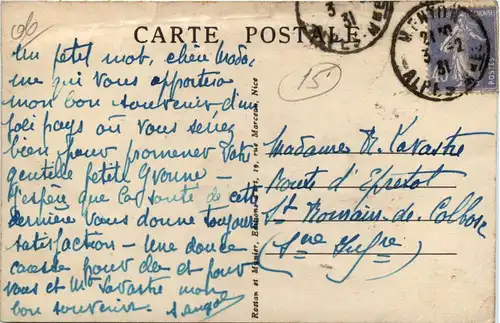 CARTE POSTALE
3
31
MENTON
3 -2
31
15
Un petit mot, chère Mada-
me qui vous apportera
mon bon souvenir d'un
joli pays où vous seriez
bien pour promener votre
gentille petite Yvonne -
J'espère que la santé de cette
dernière vous donne toujours
satisfaction - Une douce
caresse pour elle et pour
vous et Mr Lavastre mon
bon souvenir.
Madame R. Lavastre
Route d'Epretot
St Romain-de-Colbosc
(Sne Infre)
Rostan et Munier, Editions, 19, rue Marceau, Nice
POSTES